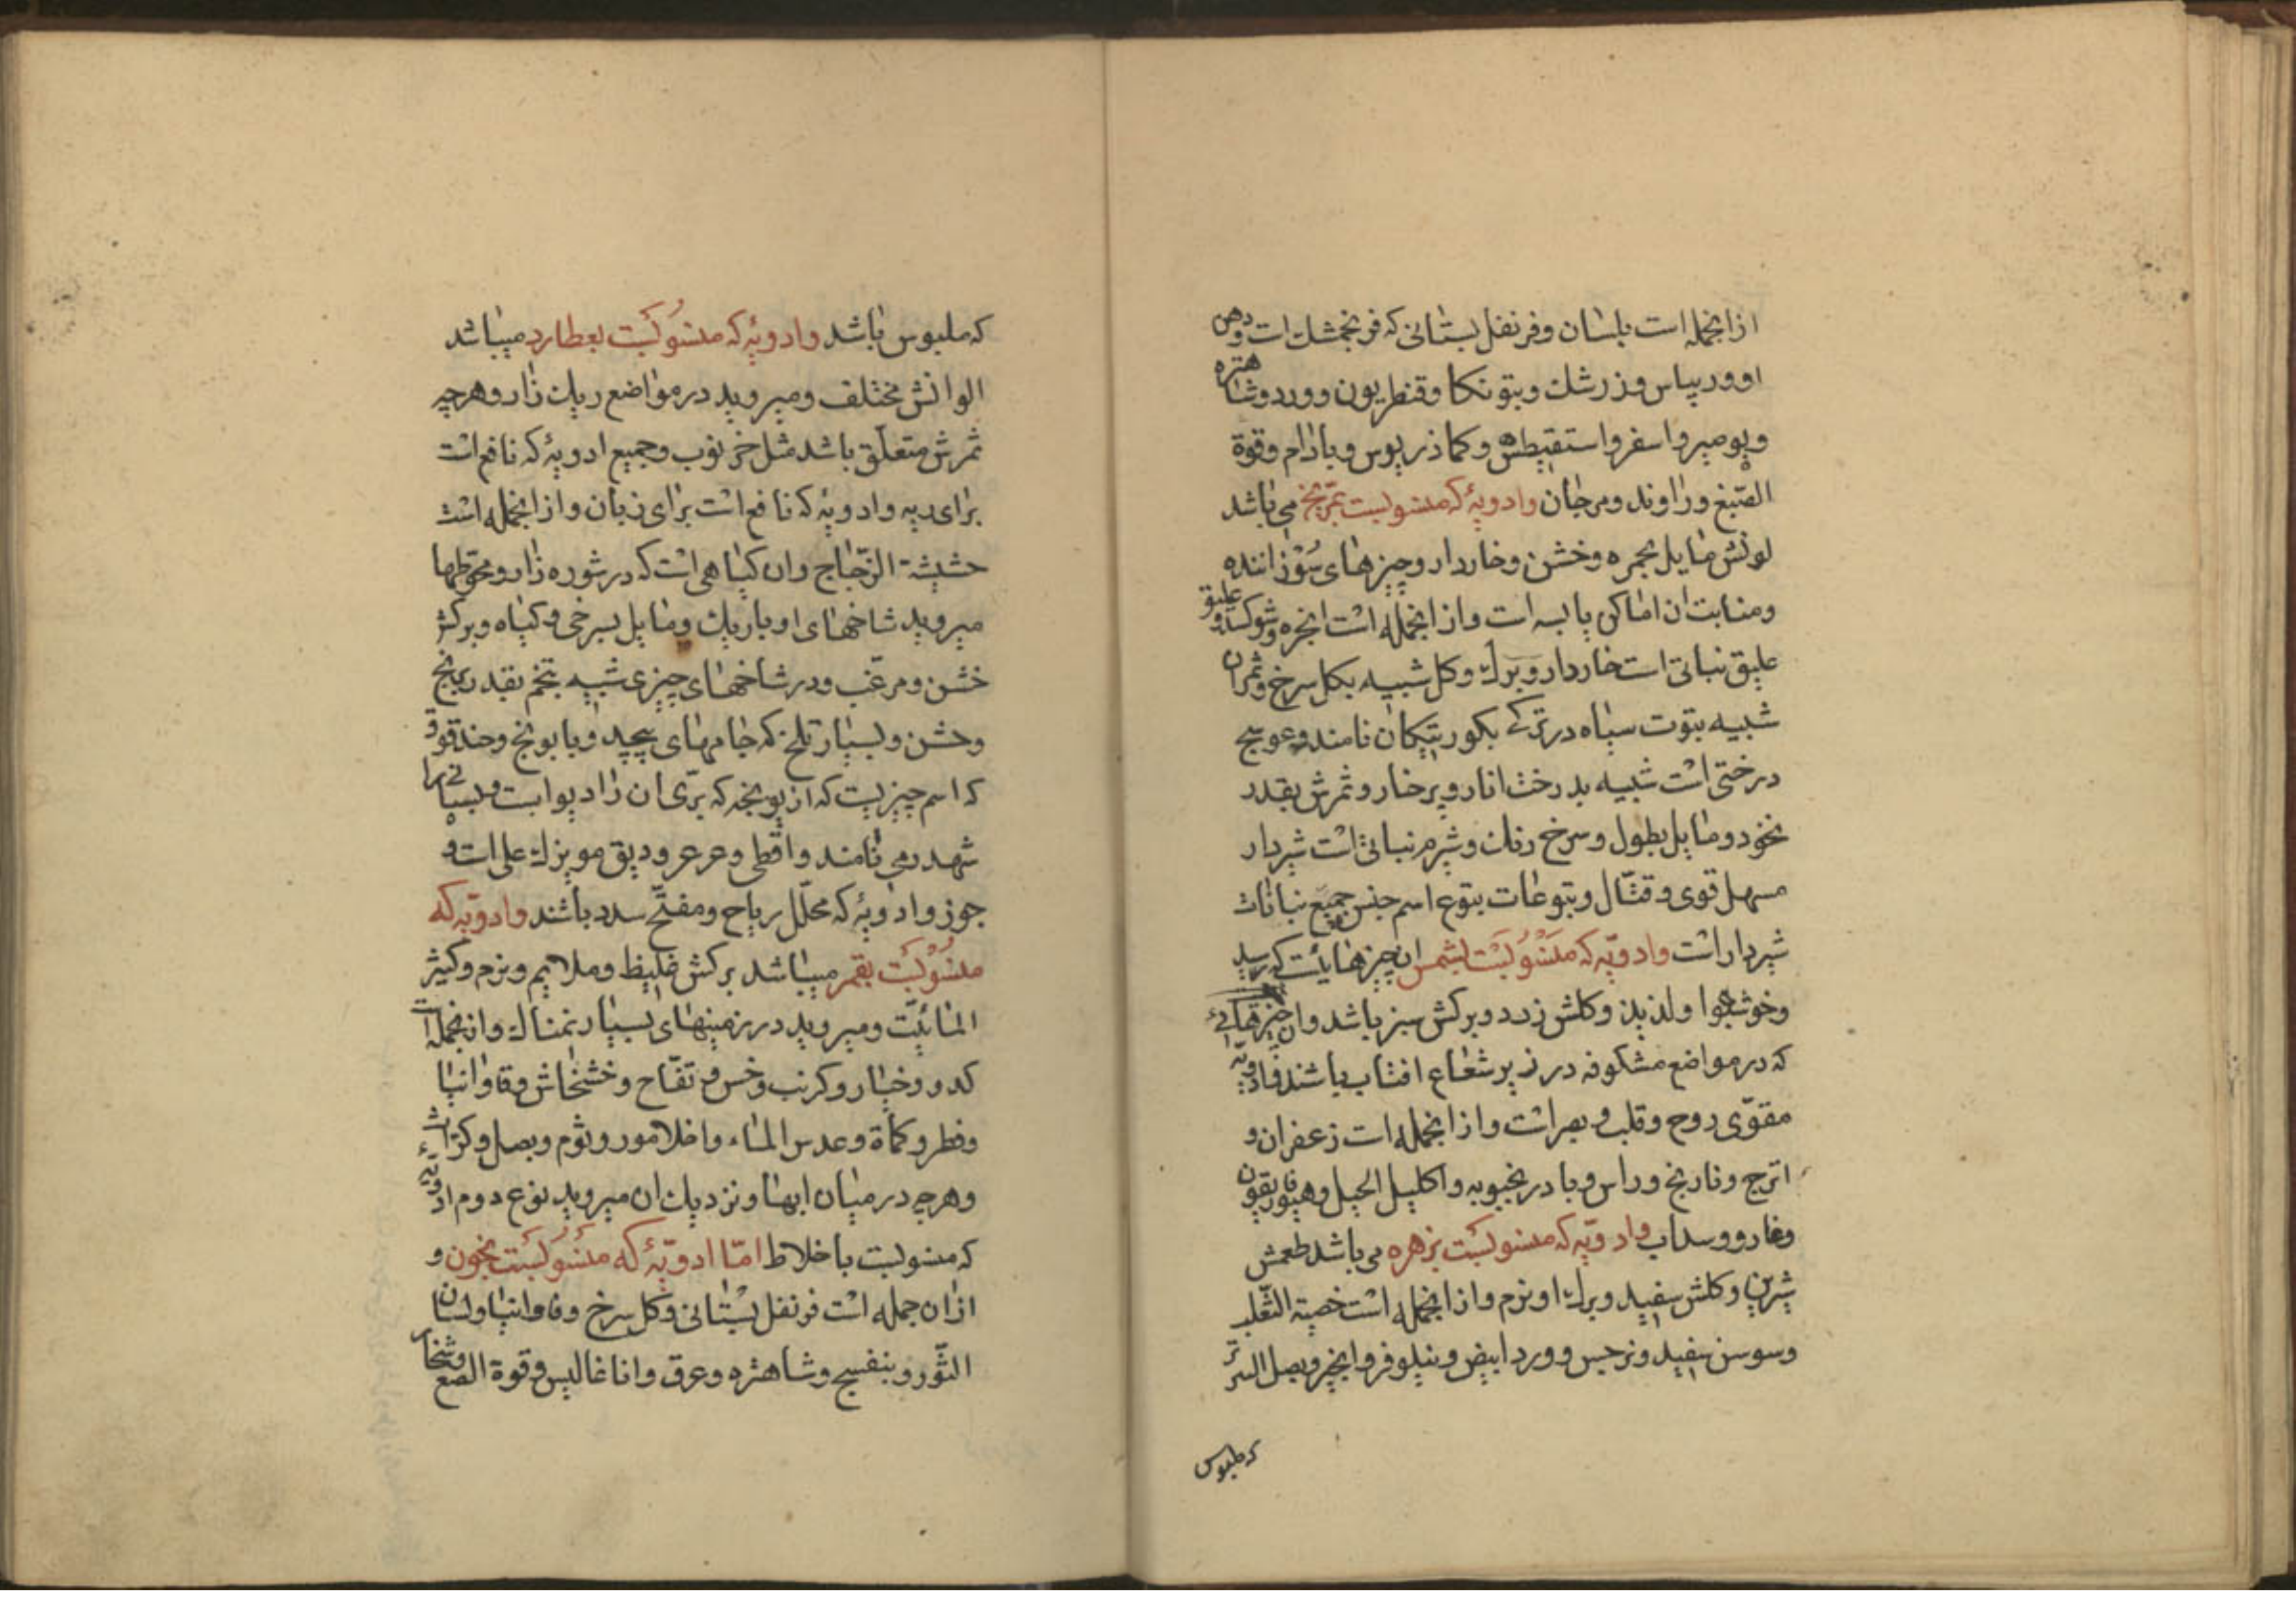 ازانجمله است بلسان وفرنفل بستانی که فرنجمشك است ودهن
اوورپیاس وزرشك وبتونکا وقنطریون وورد وشاهتره
وپومیرواسفرواستقیطس وکماذریوس وبادام وقوة
الصّبغ وراوند ومرجان وادویهٔ که منسوبست بمرّیخ می باشد
لونش مایل بحمره وخشن وخاردار وچیزهای سوزاننده
ومنابت ان اماکن یابسه است وازانجمله است انجره وشوکها وعلیق
علیق نباتی است خاردار وبرك وکل شبیه بکل سرخ وثمران
شبیه بتوت سیاه در ترکی بکورتیکان نامند وعوسج
درختی است شبیه بدرخت انار وپرخار وثمرش بقدر
نخود ومایل بطول وسرخ رنك وشبرم نباتی است شیردار
مسهل قوی وقتّال ویتوعات یتوع اسم جنس جمیع نباتات
شیردار است وادویّه که منسوبست بشمس ان چیزهایست که رسید
وخوشبوا ولذیذ وکلش زرد وبرکش سبز باشد وان چیزهائی
که در مواضع مشکوفه در زیر شعاع افتاب باشند وادویهٔ
مقوّی روح وقلب وبصر است وازانجمله است زعفران و
اترج ونارنج وراس وبادرنجبویه واکلیل الجبل وهیوفاریقون
وغار ووسداب وادویّه که منسوبست بزهره می باشد طعمش
شرین وکلش سفید وبرك او نرم وازانجمله است خصیة الثّعلب
وسوسن سفید ونرجس وورد ابیض ونیلوفر وانجیر وبصل البر
که ملبوس
که ملبوس باشد وادویهٔ که منسوبست بعطارد میباشد
الوانش مختلف ومیروید در مواضع ریك زار وهرچیه
ثمرش متعلّق باشد مثل خرنوب وجمیع ادویهٔ که نافع است
برای ریه وادویهٔ که نافع است برای زبان وازانجمله است
حشیشة الزّجاج وان کیاهی است که در شوره زار ومحوّطها
میروید شاخهای او باریك ومایل بسرخی وکیاه وبرکش
خشن ومرغّب ودر شاخهای چیزی شبیه بتخم بقدر برنج
وخشن وبسیار تلخ که جامهای پیچید وبابونج وحندقوقی
که اسم چیزیست که از یونجه که برّی ان را دیواسب وبسیاری را
شهدرمی نامند واقطی وعرعر ودبق مویزك علی است و
جوز وادویهٔ که محلّل ریاح ومفتّح سدد باشند وادویّه که
منسوبست بقمر میباشد برکش غلیظ وملایم ونرم وکثیر
المائیّت ومیروید در زمینهای بسیار نمناك وازانجمله است
کدو وخیار وکرنب وخس وتفّاح وخشخاش وقاوانیا
وفطر وکماة وعدس الماء واخلامور وثوم وبصل وکرّاث
وهرچه در میان ابها ونزدیك ان میروید نوع دوم ادویهٔ
که منسوبست باخلاط امّا ادویّهٔ که منسوبست بخون و
ازان جمله است فرنفل بستانی وکل سرخ وفاوانیا ولسان
الثّور وبنفسج وشاهتره وعرق واناغالیس وقوة الصبغ